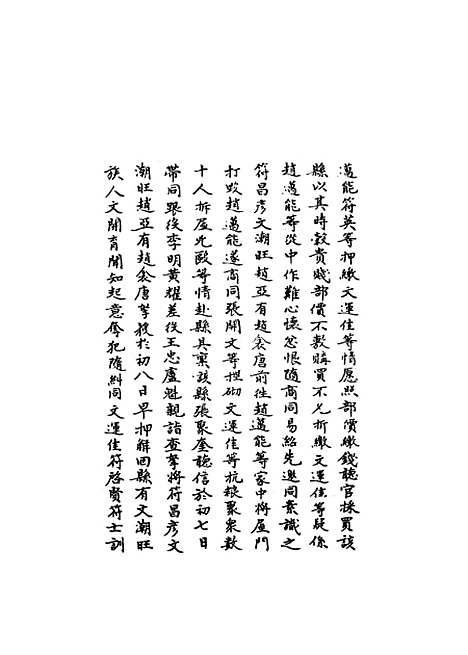 邁能符英等押繳文運佳等情愿照部價繳錢聽官採買該
縣以其時穀貴賤部價不敷購買不允折繳文運佳等疑係
趙邁能等從中作難心懷忿恨隨商同易紹先邀同素識之
符昌彥文潮旺趙亞有趙衾唐前往趙邁能等家中將屋門
打毀趙邁能遂商同張開文等捏砌文運佳等抗糧聚衆數
十人拆屋兇毆等情赴縣具禀該縣張聚奎聽信於初七日
帶同跟後李明黃耀差役王忠盧魁親詣查拏將符昌彥文
潮旺趙亞有趙衾唐拏獲於初八日早押解回縣有文潮旺
族人文開育聞知起意奪犯隨糾同文運佳符啓賢符士訓